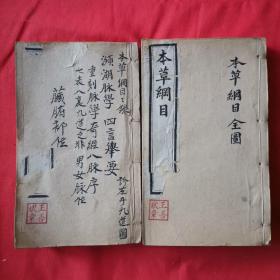 本草綱目全圖
本草綱目
本草綱目之錄
瀕湖脉學 四言舉要
重刻脉學奇經八脉序
七表八裏九道之非 男女脉位
藏腑部位